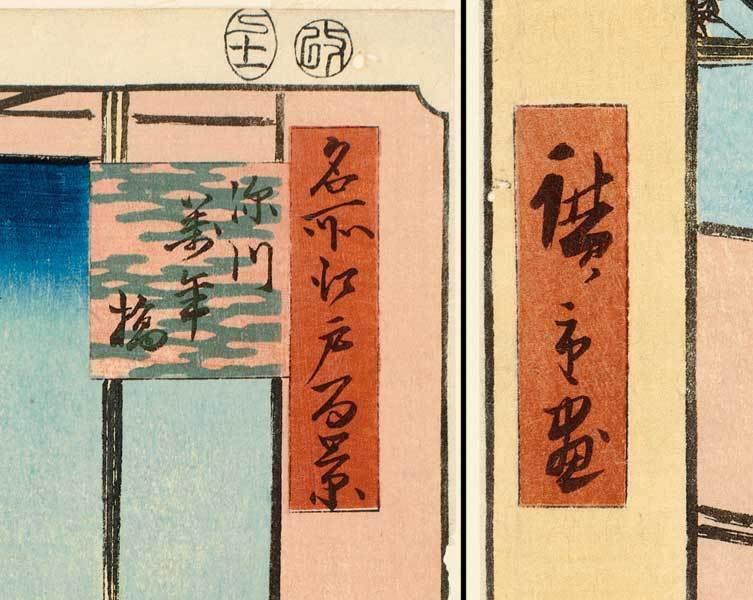 改
巳十一
名所江戸百景
深川
萬年
橋
廣重畫